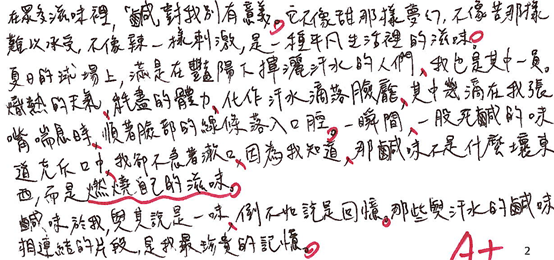 在眾多滋味裡，「鹹」對我別有意義。它不像甜那樣夢幻，不像苦那樣
難以承受，不像辣一樣刺激，是一種平凡生活裡的滋味。
夏日的球場上，滿是在豔陽下揮灑汗水的人們，我也是其中一員。
熾熱的天氣，耗盡的體力，化作汗水滴落臉龐，其中幾滴在我張
嘴喘息時，順著臉部的線條落入口腔。一瞬間，一股死鹹的味
道充斥口中，我卻不急著漱口，因為我知道，那鹹味不是什麼壞東
西，而是燃燒自己的滋味。
鹹味於我，與其說是一味，倒不如說是回憶。那些與汗水的鹹味
相連結的片段，是我最珍貴的記憶。
A+
2